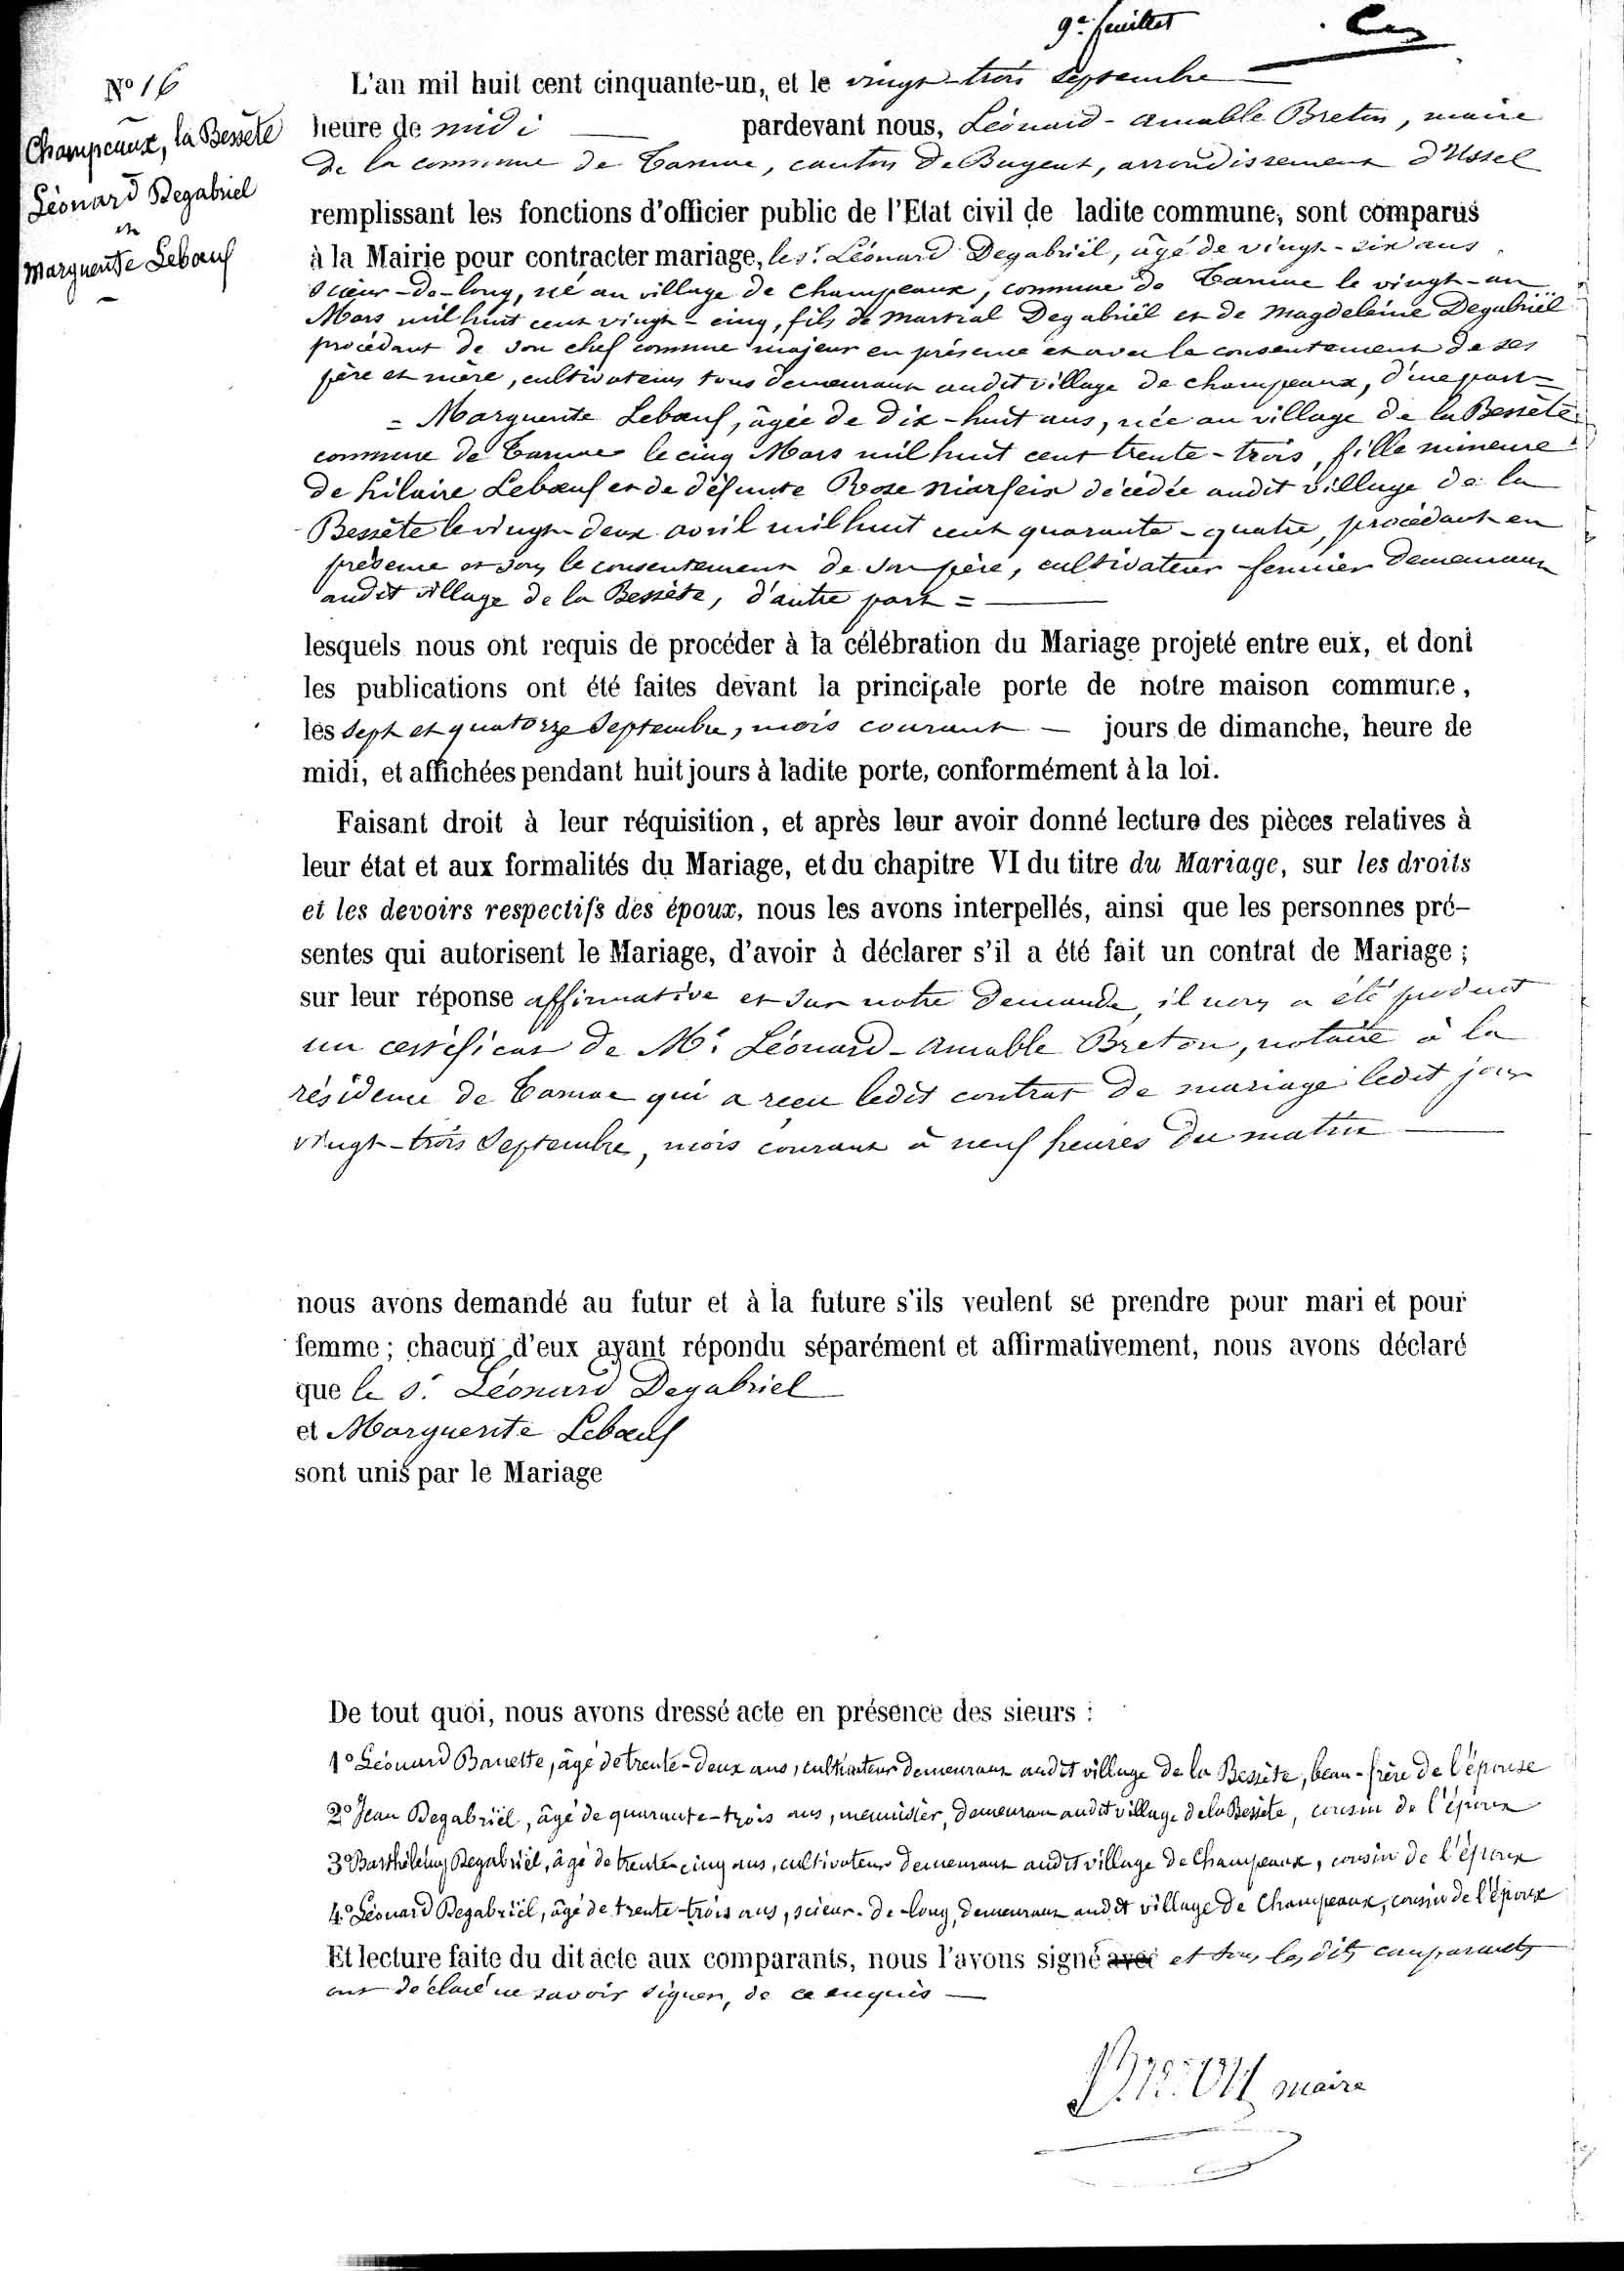 9e feuillet
No 16
Champeaux, la Bessète
Léonard Degabriel
et
Marguerite Lebœuf
L'an mil huit cent cinquante-un, et le vingt-trois Septembre
heure de midi pardevant nous, Léonard-Amable Breton, maire
de la commune de Tarnac, canton de Bugeat, arrondissement d'Ussel
remplissant les fonctions d'officier public de l'Etat civil de ladite commune, sont comparus
à la Mairie pour contracter mariage, le sr Léonard Degabriël, âgé de vingt-six ans
scieur-de-long, né au village de Champeaux, commune de Tarnac le vingt-un
Mars mil huit cent vingt-cinq, fils de Martial Degabriël et de Magdeleine Degabriël
procédant de son chef comme majeur en présence et avec le consentement de ses
père et mère, cultivateurs tous demeurant audit village de Champeaux, d'une part =
= Marguerite Lebœuf, âgée de dix-huit ans, née au village de la Bessète
commune de Tarnac le cinq Mars mil huit cent trente-trois, fille mineure
de hilaire Lebœuf et de défunte Rose Niarfeix décédée audit village de la
Bessète le vingt-deux avril mil huit cent quarante-quatre, procédant en
présence et sous le consentement de son père, cultivateur-fermier demeurant
audit village de la Bessète, d'autre part =
lesquels nous ont requis de procéder à la célébration du Mariage projeté entre eux, et dont
les publications ont été faites devant la principale porte de notre maison commune,
les sept et quatorze Septembre, mois courant — jours de dimanche, heure de
midi, et affichées pendant huit jours à ladite porte, conformément à la loi.
Faisant droit à leur réquisition, et après leur avoir donné lecture des pièces relatives à
leur état et aux formalités du Mariage, et du chapitre VI du titre du Mariage, sur les droits
et les devoirs respectifs des époux, nous les avons interpellés, ainsi que les personnes pré-
sentes qui autorisent le Mariage, d'avoir à déclarer s'il a été fait un contrat de Mariage ;
sur leur réponse affirmative et sur notre demande, il nous a été produit
un certificat de Me Léonard-Amable Breton, notaire à la
résidence de Tarnac qui a reçu ledit contrat de mariage ledit jour
vingt-trois Septembre, mois courant à neuf heures du matin
nous avons demandé au futur et à la future s'ils veulent se prendre pour mari et pour
femme ; chacun d'eux ayant répondu séparément et affirmativement, nous avons déclaré
que le sr Léonard Degabriel
et Marguerite Lebœuf
sont unis par le Mariage
De tout quoi, nous avons dressé acte en présence des sieurs :
1o Léonard Banette, âgé de trente-deux ans, cultivateur demeurant audit village de la Bessète, beau-frère de l'épouse
2o Jean Degabriël, âgé de quarante-trois ans, menuisier, demeurant audit village de la Bessète, cousin de l'époux
3o Barthélemy Degabriël, âgé de trente cinq ans, cultivateur demeurant audit village de Champeaux, cousin de l'époux
4o Léonard Degabriël, âgé de trente-trois ans, scieur-de-long, demeurant audit village de Champeaux, cousin de l'époux
Et lecture faite du dit acte aux comparants, nous l'avons signé avec et tous lesdits comparants
ont déclaré ne savoir signer, de ce enquis —
Breton maire